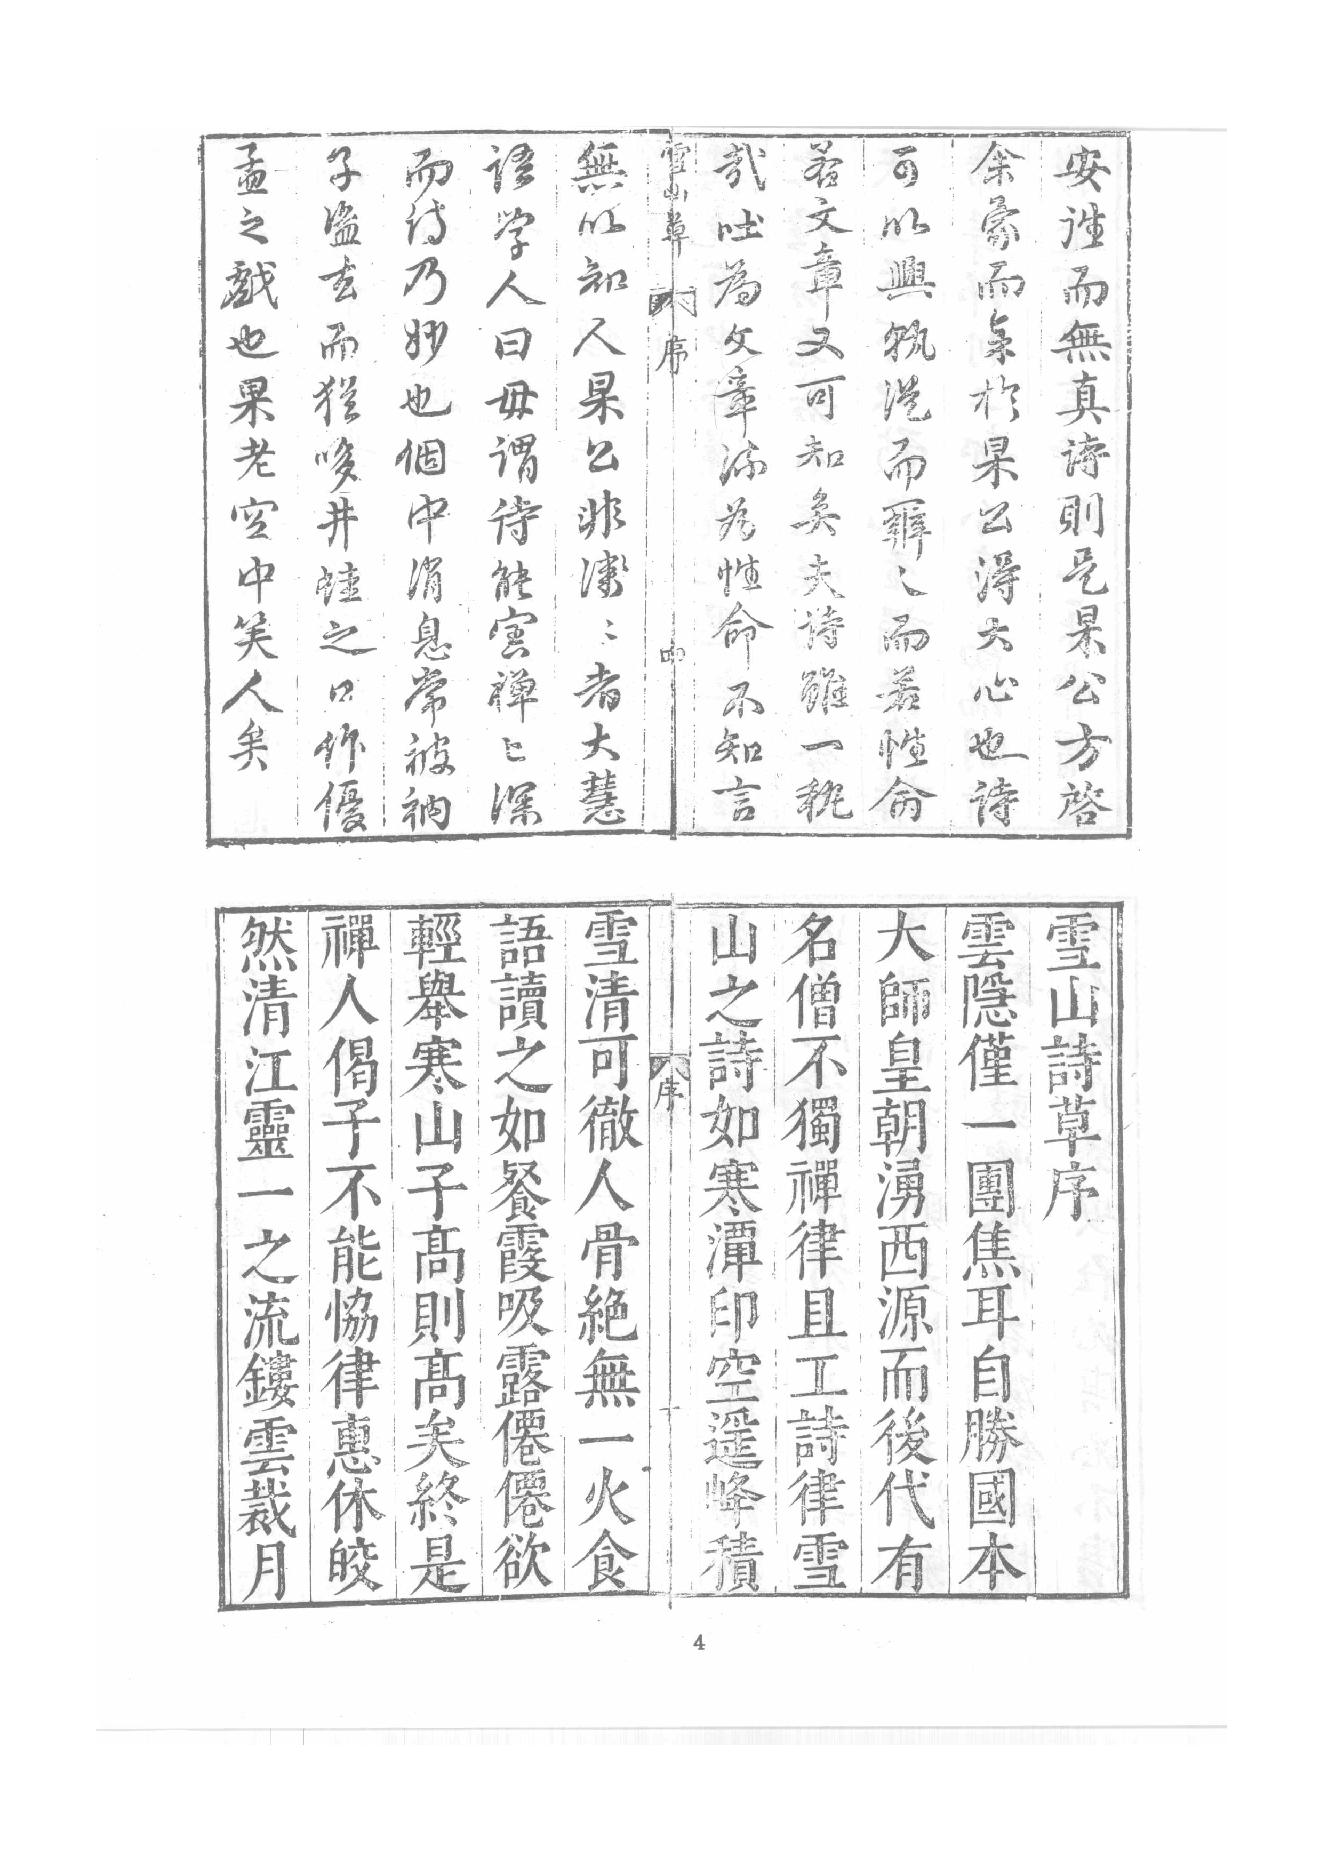 安誰而無真詩則是杲公方啓
余豪而氣於杲公得大心也詩
可以興孰從而興之而若性命
若文章又可知矣夫詩雖一執
哉吐為文章流為性命不知言
雪山草 序 四
無以知人杲公非溥〻者大慧
語學人曰毋謂詩能害禪〻深
而詩乃妙也個中消息常被衲
子盜去而猶嗳井蛙之口作優
孟之戲也果老空中笑人矣
雪山詩草序
雲隱僅一團焦耳自勝國本
大師皇朝湧西源而後代有
名僧不獨禪律且工詩律雪
山之詩如寒潭印空遥峰積
序 一
雪清可徹人骨絶無一火食
語讀之如餐霞吸露僊僊欲
輕舉寒山子高則高矣終是
禪人偈子不能恊律惠休皎
然清江靈一之流鏤雲裁月
4